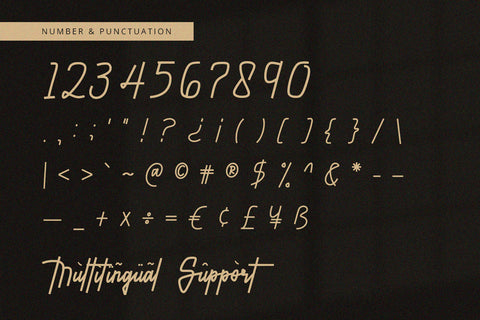 NUMBER & PUNCTUATION
1234567890
. , : ; ' " ! ? ¿ ¡ ( ) [ ] { } / \
| < > ` ~ @ © # ® $ % ^ & * - –
— _ + x ÷ = € ¢ £ ¥ ß
Mùltitîñgüãl Sûppòrt